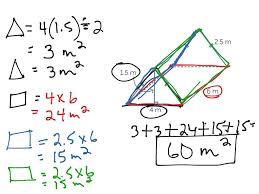 △ = 4(1.5) ÷ 2
= 3 m²
△ = 3 m²
▭ = 4 x 6
= 24 m²
▭ = 2.5 x 6
= 15 m²
▭ = 2.5 x 6
= 15 m²
2.5 m
1.5 m
4 m
6 m
3 + 3 + 24 + 15 + 15 =
60 m²